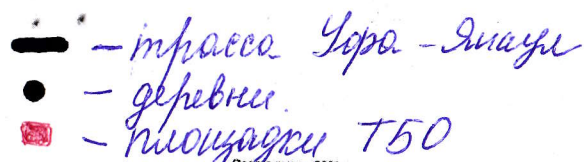 — трасса Уфа - Янаул
— деревни.
— площадки ТБО